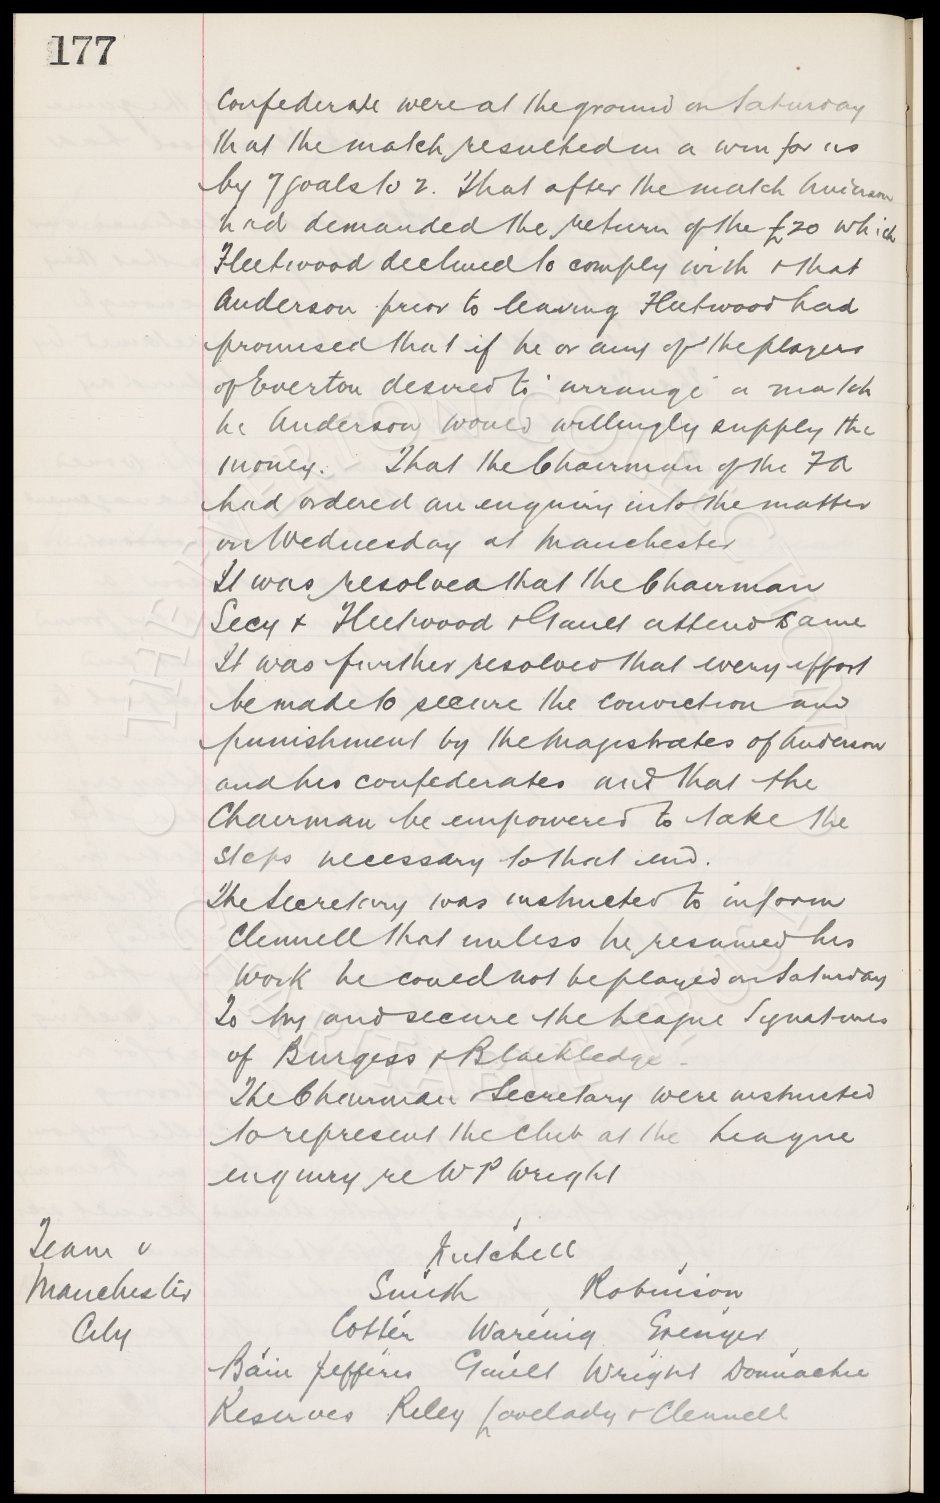 177
Confederate were at the ground on Saturday
that the match resulted in a win for us
by 7 goals to 2. That after the match Anderson
had demanded the return of the £20 which
Fleetwood declined to comply with & that
Anderson prior to leaving Fleetwood had
promised that if he or any of the players
of Everton desired to "arrange" a match
he Anderson would willingly supply the
money. That the Chairman of the FA
had ordered an enquiry into the matter
on Wednesday at Manchester
It was resolved that the Chairman
Secy & Fleetwood & Gault attend same
It was further resolved that every effort
be made to secure the conviction and
punishment by the Magistrates of Anderson
and his confederates and that the
Chairman be empowered to take the
steps necessary to that end.
The Secretary was instructed to inform
Clennell that unless he resumed his
work he could not be played on Saturday
To try and secure the League Signatures
of Burgess & Blackledge.
The Chairman & Secretary were instructed
to represent the Club at the League
enquiry re W P Wright
Team v
Manchester
City
Mitchell
Smith Robinson
Cotter Wareing Grenyer
Bain Jefferis Gault Wright Donnachie
Reserves Riley Lovelady & Clennell